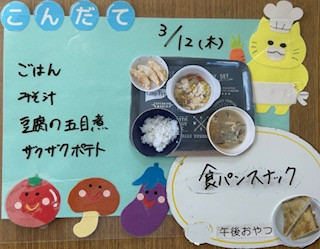 こんだて
3/12(木)
ごはん
みそ汁
豆腐の五目煮
サクサクポテト
食パンスナック
午後おやつ